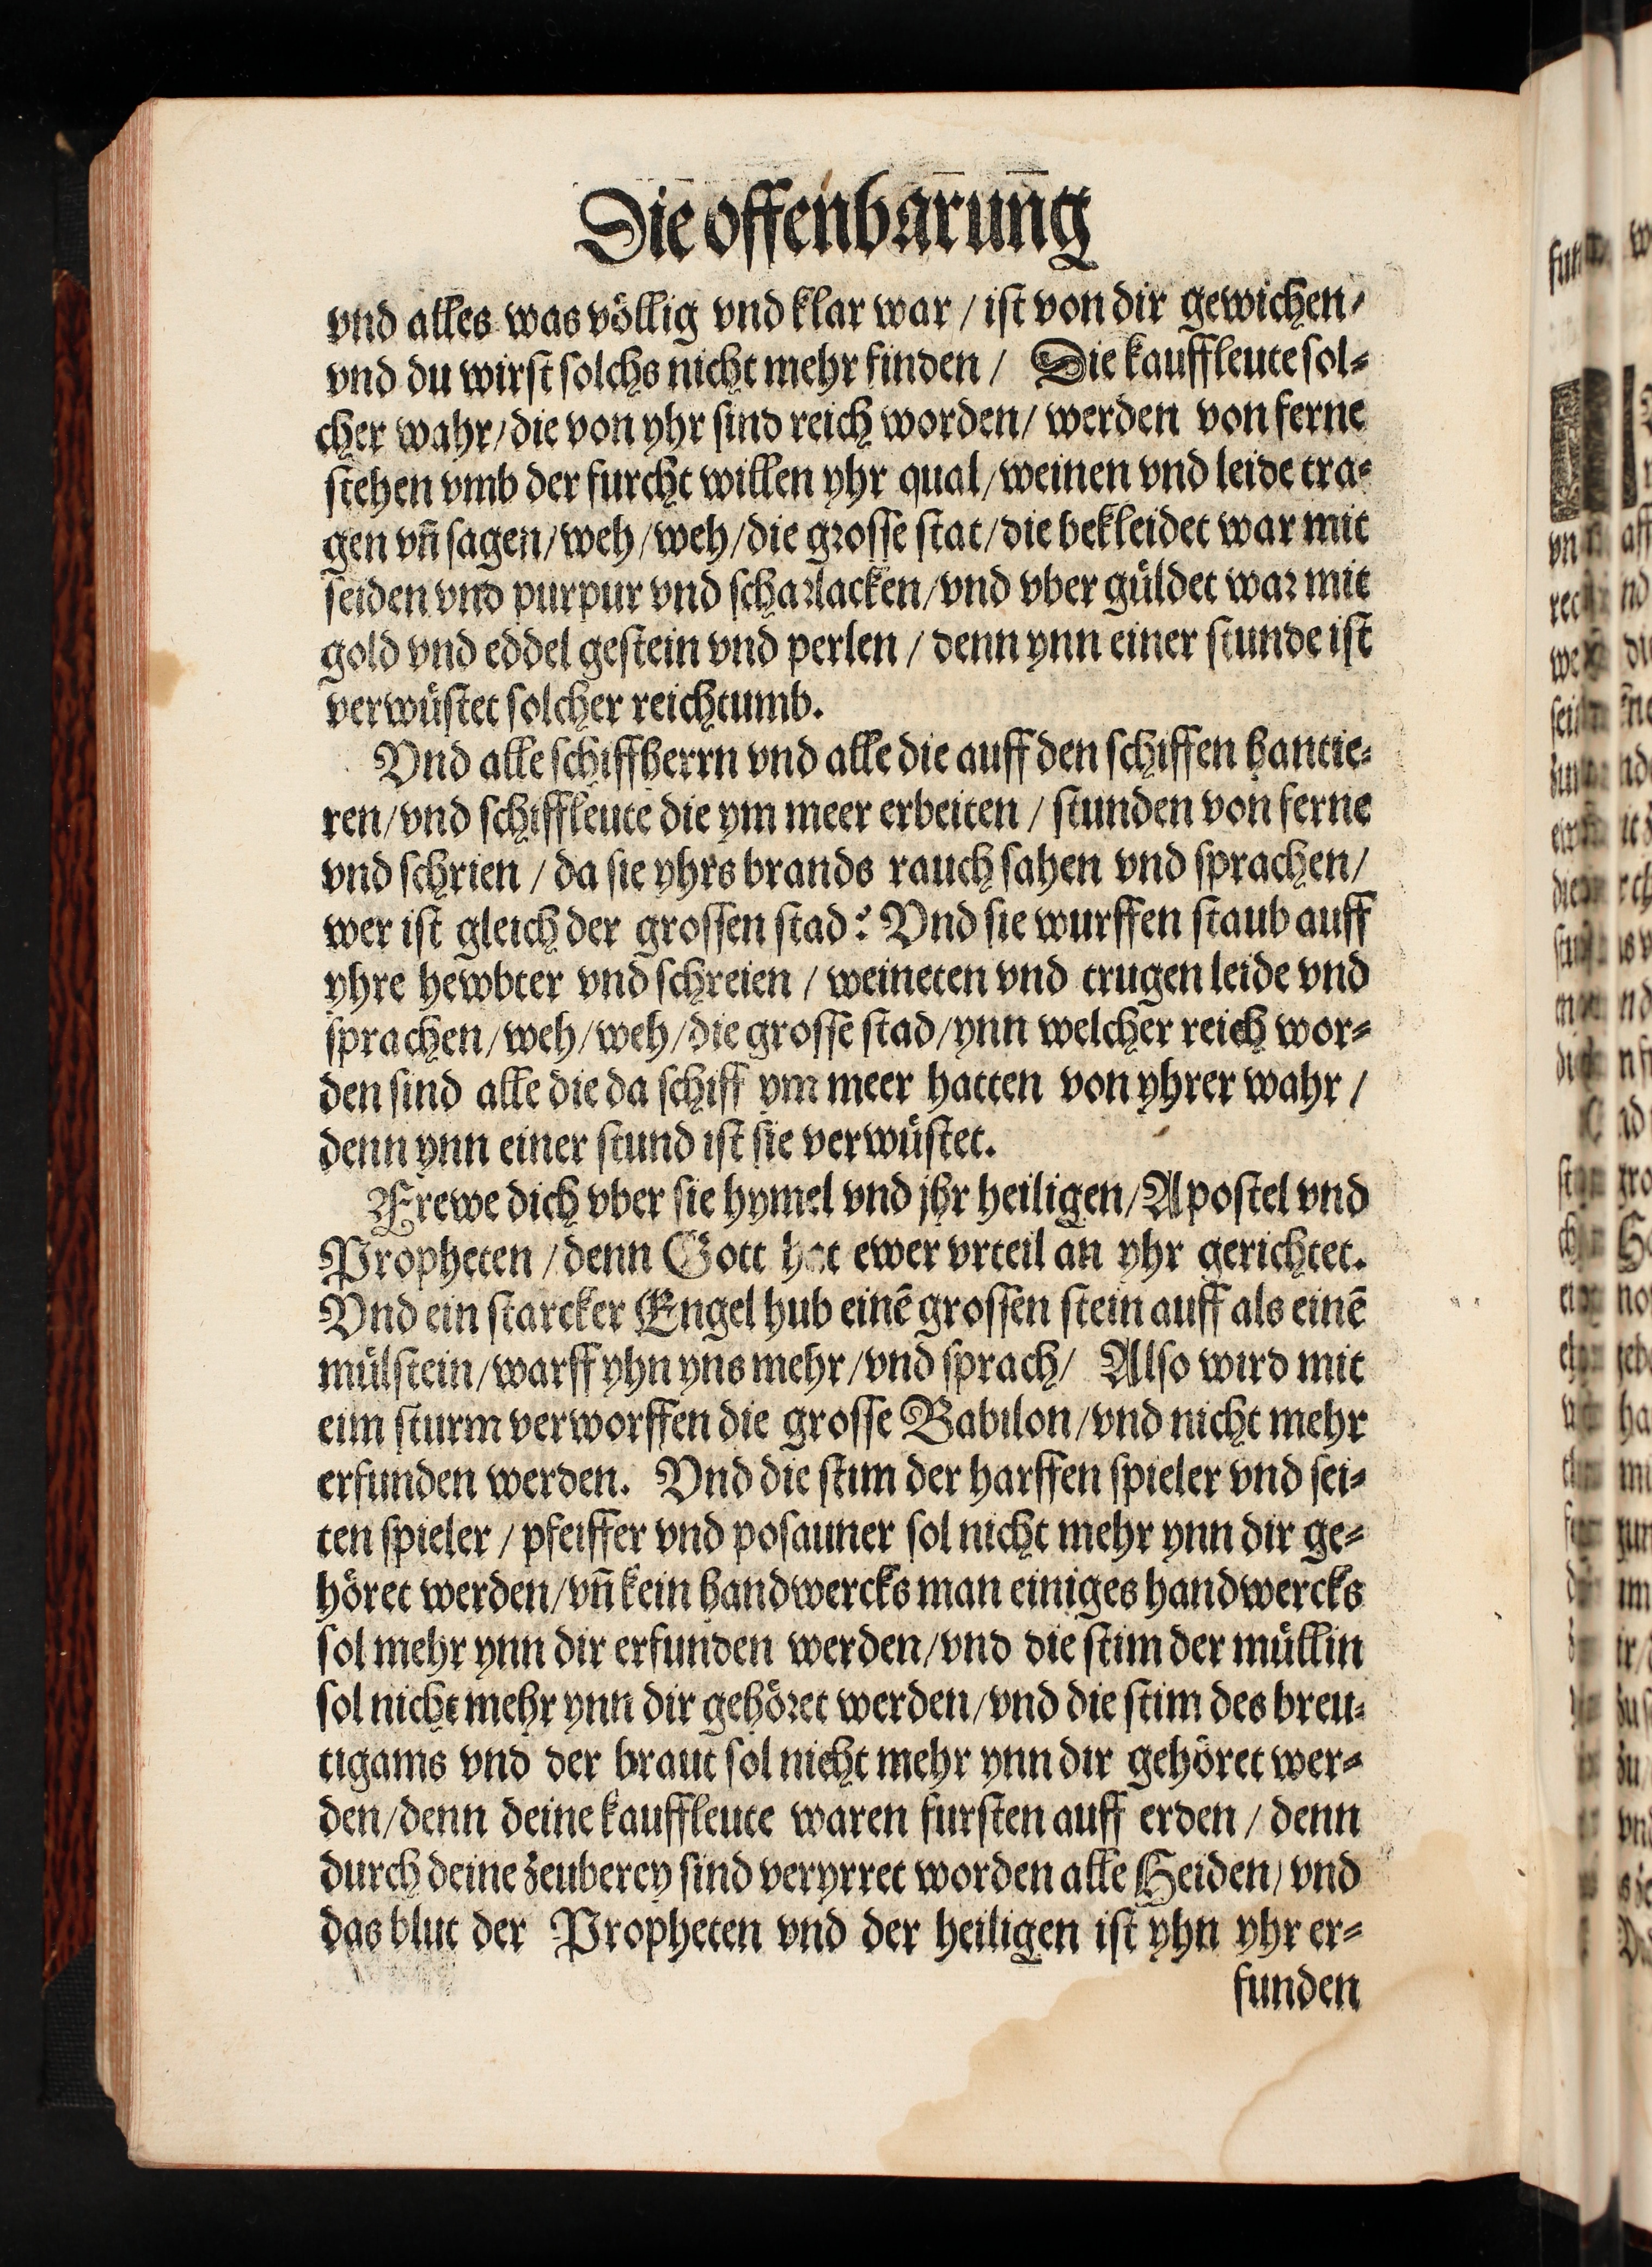 Die offenbarung
vnd alles was völlig vnd klar war / ist von dir gewichen/
vnd du wirst solchs nicht mehr finden / Die kauffleute sol⸗
cher wahr/die von yhr sind reich worden/ werden von ferne
stehen vmb der furcht willen yhr qual/weinen vnd leide tra⸗
gen vn̄ sagen/weh/weh/die grosse stat/die bekleidet war mit
seiden vnd purpur vnd scharlacken/vnd vber güldet war mit
gold vnd eddel gestein vnd perlen / denn ynn einer stunde ist
verwüstet solcher reichtumb.
Vnd alle schiffherrn vnd alle die auff den schiffen hantie⸗
ren/vnd schiffleute die ym meer erbeiten / stunden von ferne
vnd schrien / da sie yhrs brands rauch sahen vnd sprachen/
wer ist gleich der grossen stad? Vnd sie wurffen staub auff
yhre hewbter vnd schreien / weineten vnd trugen leide vnd
sprachen/weh/weh/die grosse stad/ynn welcher reich wor⸗
den sind alle die da schiff ym meer hatten von yhrer wahr /
denn ynn einer stund ist sie verwüstet.
Frewe dich vber sie hymel vnd jhr heiligen/Apostel vnd
Propheten / denn Gott hat ewer vrteil an yhr gerichtet.
Vnd ein starcker Engel hub einē grossen stein auff als einē
mülstein/warff yhn yns mehr/vnd sprach/ Also wird mit
eim sturm verworffen die grosse Babilon/vnd nicht mehr
erfunden werden. Vnd die stim der harffen spieler vnd sei⸗
ten spieler / pfeiffer vnd posauner sol nicht mehr ynn dir ge⸗
höret werden/vn̄ kein handwercks man einiges handwercks
sol mehr ynn dir erfunden werden/vnd die stim der müllin
sol nicht mehr ynn dir gehöret werden/vnd die stim des breu⸗
tigams vnd der braut sol nicht mehr ynn dir gehöret wer⸗
den/denn deine kauffleute waren fursten auff erden / denn
durch deine zeuberey sind veryrret worden alle Heiden/ vnd
das blut der Propheten vnd der heiligen ist yhn yhr er⸗
funden